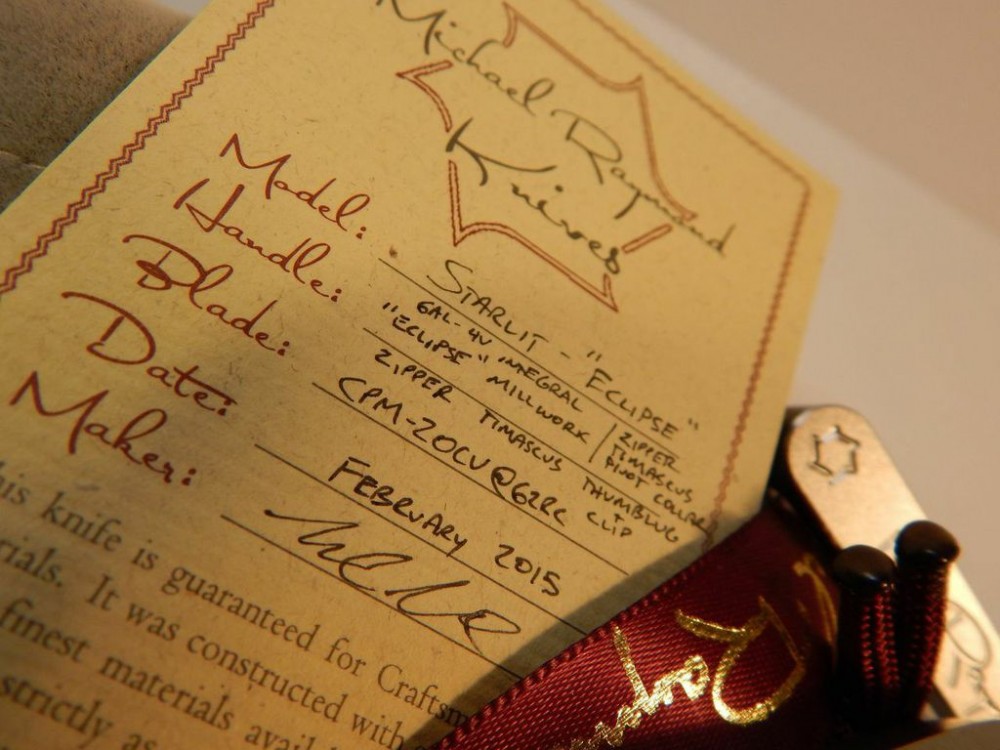 Michael Raymond
Knives
Model: STARLIT - "ECLIPSE"
Handle: 6AL-4V INTEGRAL
"ECLIPSE" MILLWORK / ZIPPER TIMASCUS PIVOT COLLAR
ZIPPER TIMASCUS THUMBLUG + CLIP
Blade: CPM-20CV @ 62RC
Date: FEBRUARY 2015
Maker:
his knife is guaranteed for Craftsm
rials. It was constructed with
finest materials avail
strictly as